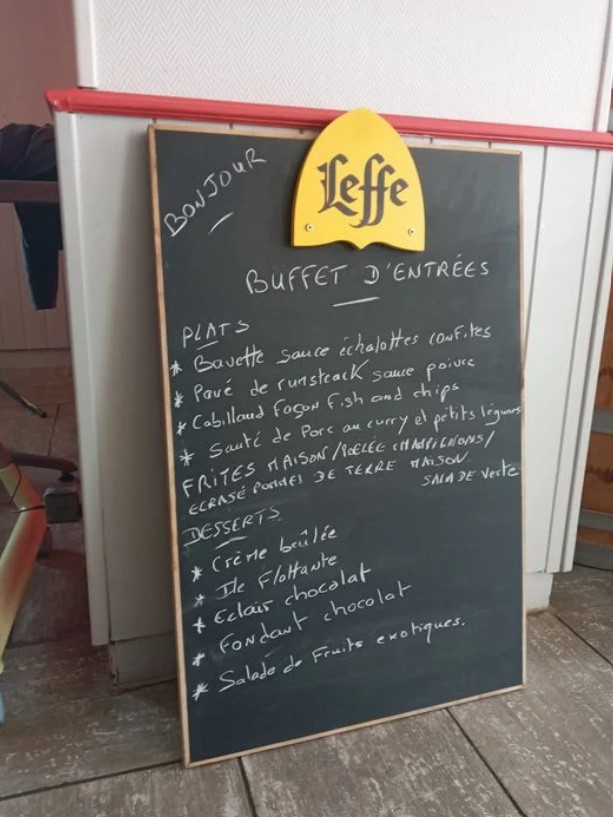 BONJOUR
Leffe
BUFFET D'ENTRÉES
PLATS
* Bavette sauce échalottes confites
* Pavé de rumsteack sauce poivre
* Cabillaud façon Fish and chips
* Sauté de Porc au curry et petits légumes
FRITES MAISON/POÊLÉE CHAMPIGNONS/
ECRASÉ POMMES DE TERRE MAISON
SALADE Verte
DESSERTS
* Crème brûlée
* Ile Flottante
* Eclair chocolat
* Fondant chocolat
* Salade de Fruits exotiques.